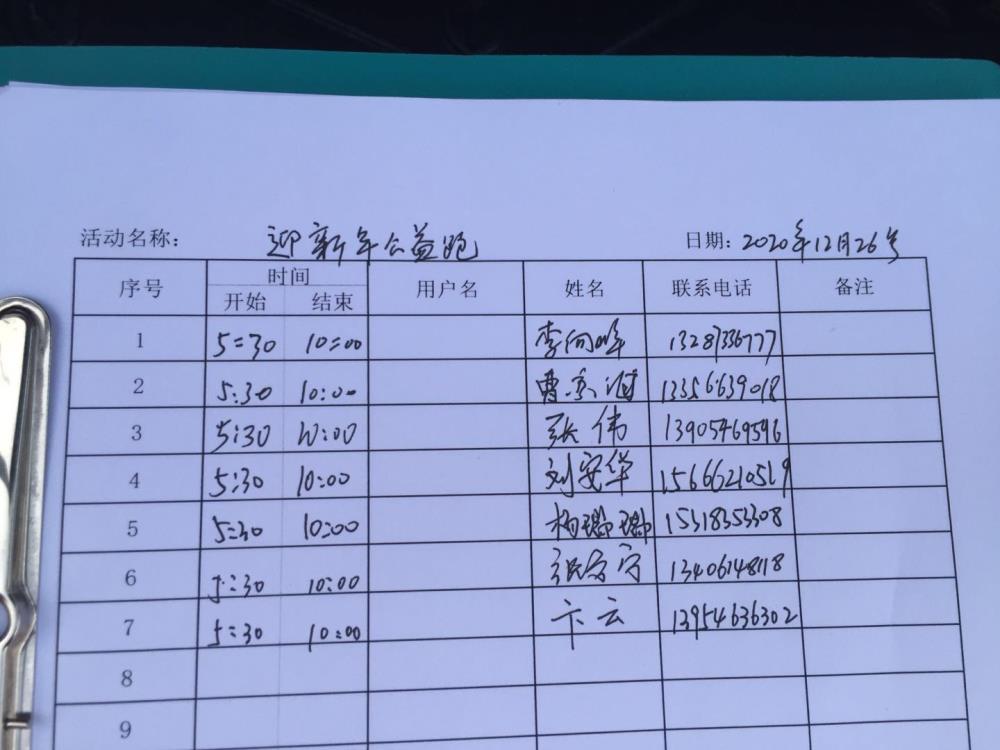 活动名称： 迎新年公益跑 日期：2020年12月26号
序号 时间 用户名 姓名 联系电话 备注
开始 结束
1 5:30 10:00 李向峰 13287336777
2 5:30 10:00 曹 13356639018
3 5:30 10:00 张伟 13905469596
4 5:30 10:00 刘安华 15666210519
5 5:30 10:00 杨璐璐 15318353308
6 5:30 10:00 张 宁 13406148118
7 5:30 10:00 卞云 13954636302
8
9